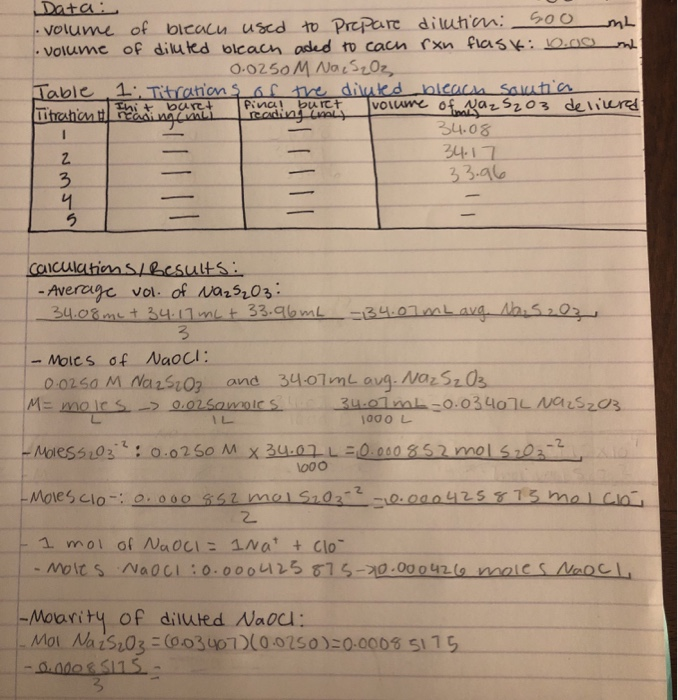 Data:
· volume of bleach used to prepare dilution: 500 mL
· volume of diluted bleach aded to each rxn flask: 10.00 mL
0.0250 M Na2S2O3
Table 1: Titrations of the diluted bleach solution
Titration # | Init buret reading (mL) | final buret reading (mL) | volume of Na2S2O3 delivered (mL)
1 — — 34.08
2 — — 34.17
3 — — 33.96
4 — — —
5 — — —
Calculations/Results:
- Average vol. of Na2S2O3:
34.08mL + 34.17mL + 33.96mL / 3 = 34.07mL avg. Na2S2O3
- Moles of NaOCl:
0.0250 M Na2S2O3 and 34.07mL avg. Na2S2O3
M = moles / L → 0.0250 moles / 1L 34.07mL / 1000 L = 0.03407L Na2S2O3
- Moles S2O3⁻²: 0.0250 M x 34.07 L / 1000 = 0.000852 mol S2O3⁻²
- Moles ClO⁻: 0.000852 mol S2O3⁻² / 2 = 0.000425875 mol ClO⁻
- 1 mol of NaOCl = 1Na⁺ + ClO⁻
- Moles NaOCl: 0.000425875 → 0.000426 moles NaOCl
- Molarity of diluted NaOCl:
- Mol Na2S2O3 = (0.03407)(0.0250) = 0.00085175
- 0.00085175 / 3 =